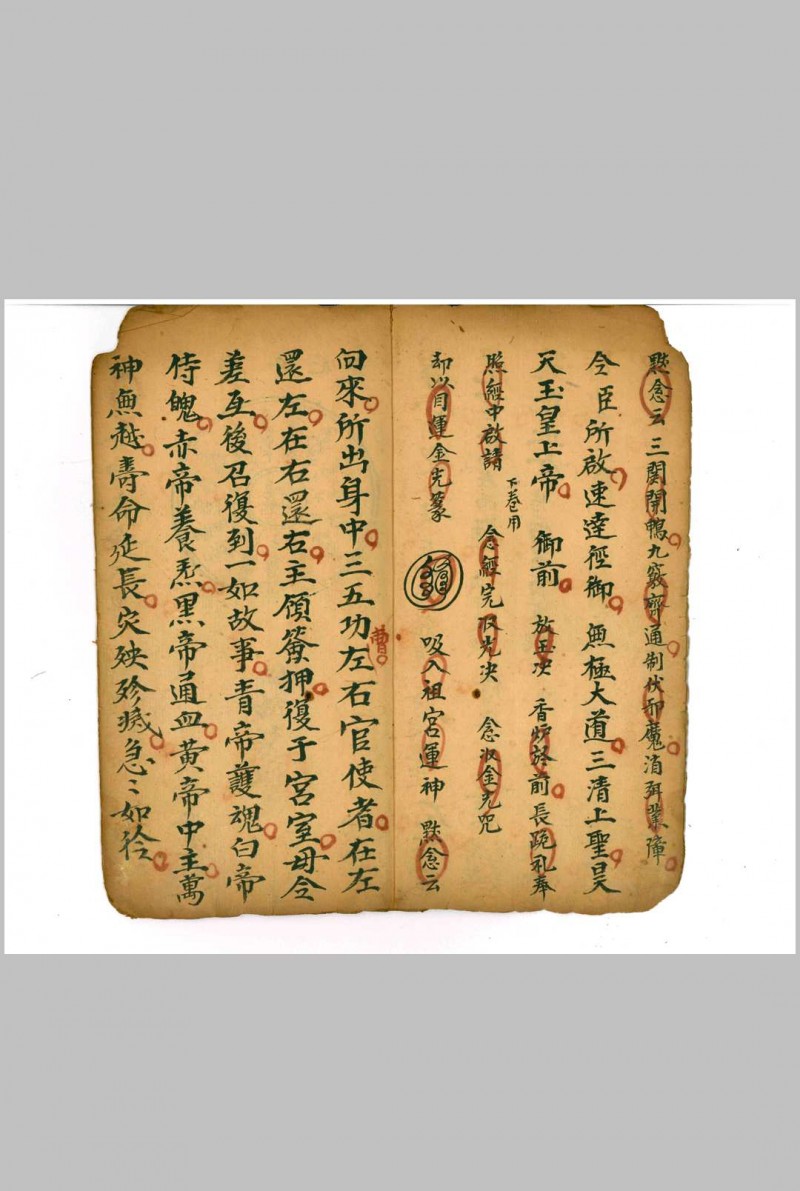 默念云三関開鴨九竅齊通制伏邪魔消弭業障
令臣所啟速達徑御無極大道三清上聖昊
天玉皇上帝 御前 放玉决 香炉於前長跪礼奉
照經中啟請 下卷用 念經完收光决 念收金光咒
却以目運金光篆 吸入祖宮運神 默念云
向來所出身中三五功曹左右官使者在左
還左在右還右主領簽押復于宮室毋令
差互後召復到一如故事青帝護魂白帝
侍魄赤帝養炁黑帝通血黄帝中主萬
神無越壽命延長灾殃殄滅急〻如